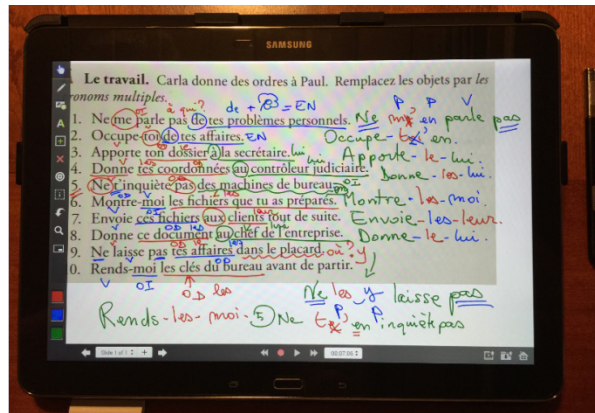 SAMSUNG
Le travail. Carla donne des ordres à Paul. Remplacez les objets par les
ronoms multiples.
à qui? de + = EN
1. Ne me parle pas de tes problèmes personnels. Ne m' en parle pas
OI P P V
2. Occupe-toi de tes affaires. EN Occupe-t' en.
3. Apporte ton dossier à la secrétaire. lui Apporte-le-lui.
V OD le
4. Donne tes coordonnées au contrôleur judiciaire. lui Donne-les-lui.
5. Ne t'inquiète pas des machines de bureau.
6. Montre-moi les fichiers que tu as préparés. Montre-les-moi
V OI OD
7. Envoie ces fichiers aux clients tout de suite. Envoie-les-leur.
leur
8. Donne ce document au chef de l'entreprise. Donne-le-lui.
V OD
9. Ne laisse pas tes affaires dans le placard. où? y
V OD les
0. Rends-moi les clés du bureau avant de partir.
V OI OD les
Ne les y laisse pas
Rends-les-moi. 5 Ne t' en inquiète pas
P P
Slide 1 of 1
00:07:06